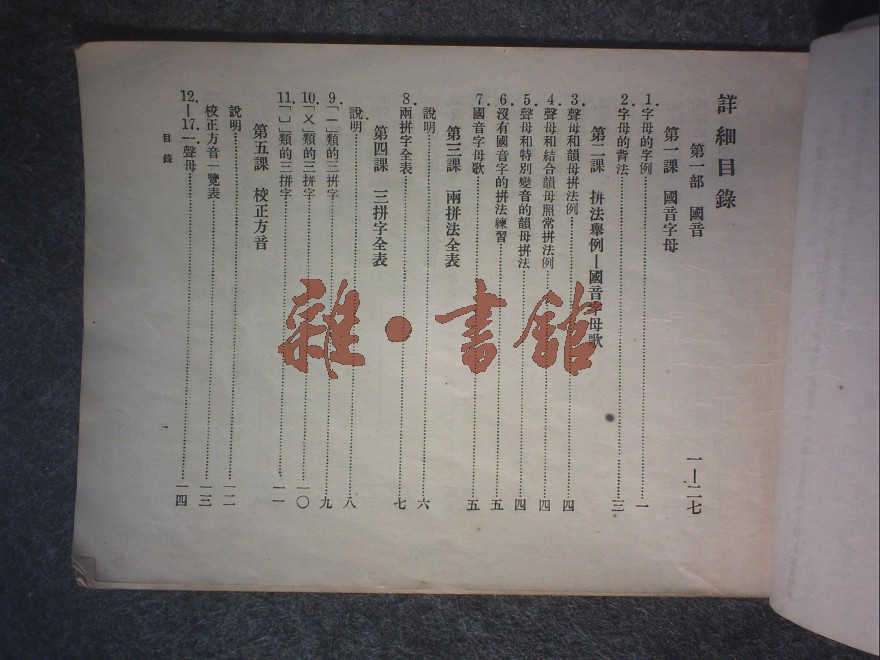 詳細目錄
第一部 國音 一—二七
第一課 國音字母
1.字母的字例 一
2.字母的背法 三
第二課 拼法舉例—國音字母歌
3.聲母和韻母拼法例 四
4.聲母和結合韻母照常拼法例 四
5.聲母和特別變音的韻母拼法 四
6.沒有國音字的拼法練習 五
7.國音字母歌 五
第三課 兩拼法全表
說明 六
8.兩拼字全表 七
第四課 三拼字全表
說明 八
9.「一」類的三拼字 九
10.「ㄨ」類的三拼字 一〇
11.「ㄩ」類的三拼字 一一
第五課 校正方音
說明 一二
校正方音一覽表 一三
12.—17.一聲母 一四
目錄
雜·書館